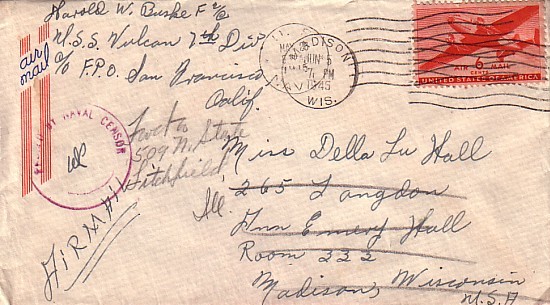 Harold W. Buske F 2/c
U.S.S. Vulcan 7th Div.
c/o F.P.O. San Francisco
Calif.
air
mail
MADISON
JUN 5
7 PM
1945
WIS.
6
AIR MAIL
CENTS
UNITED STATES OF AMERICA
NAVAL CENSOR
509 N. State
Litchfield
Ill.
AIRMAIL
Miss Della Lu Hall
265 Langdon
Ann Emery Hall
Room 222
Madison, Wisconsin
U.S.A